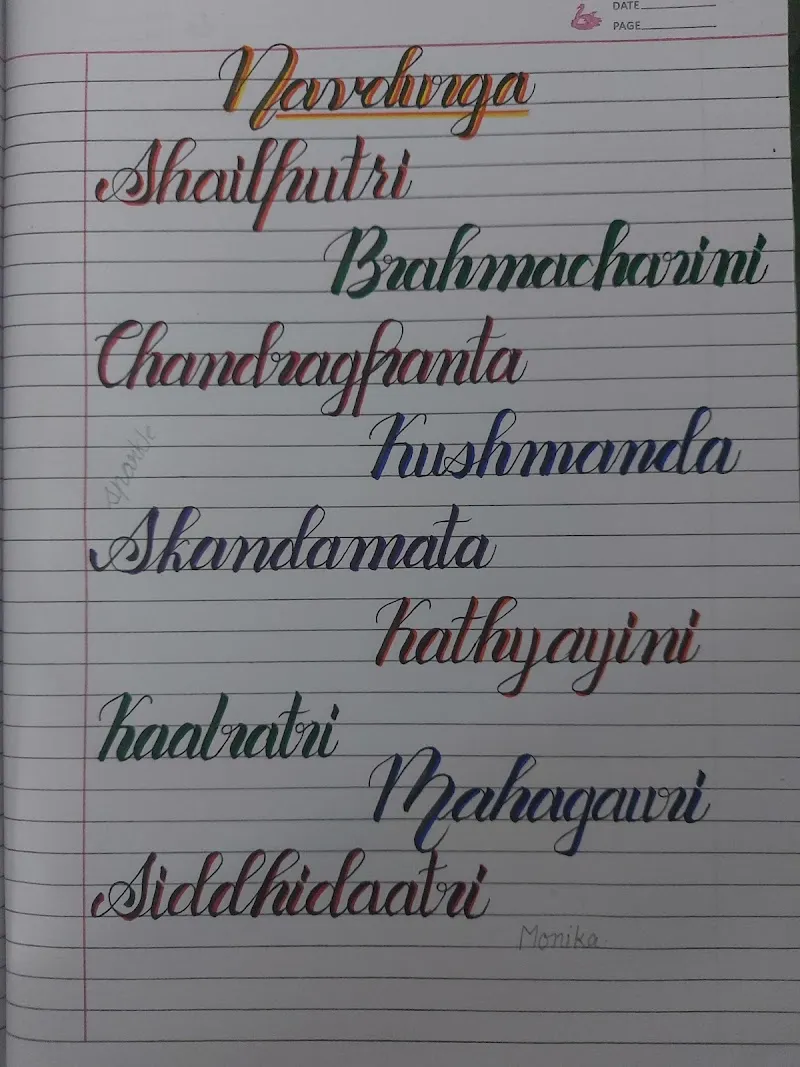 DATE
PAGE
Navdurga
Shailputri
Brahmacharini
Chandraghanta
Kushmanda
sparkle
Skandamata
Kathyayini
Kaalratri
Mahagauri
Siddhidaatri
Monika